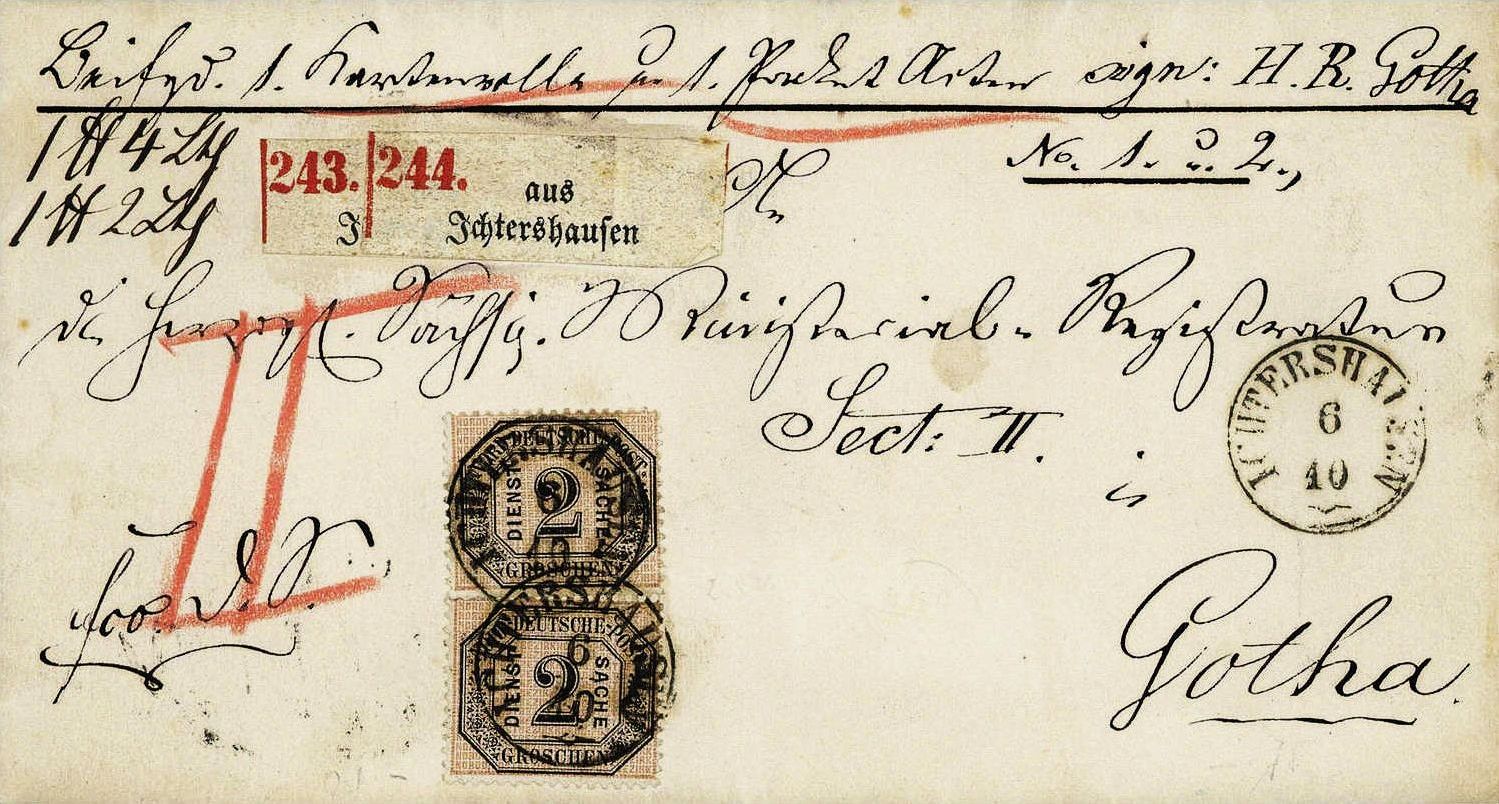 Beifgd. 1. Kartenrolle u. 1. Packet Acten sign: H. R. Gotha
No. 1. u. 2.,
1 ℔ 4 Lth
1 ℔ 2 Lth
243. 244.
aus
J Ichtershausen
An
die Herzogl. Sächs. Ministerial-Registratur
Sect: II.
in
Gotha.
II
fco. d. S.
ICHTERSHAUSEN
6
10
NORDD. POSTBEZIRK
DEUTSCHE POST
DIENST SACHE
2
GROSCHEN
ICHTERSHAUSEN
6
10
DEUTSCHE-POST
DIENST SACHE
2
GROSCHEN
ICHTERSHAUSEN
6
10